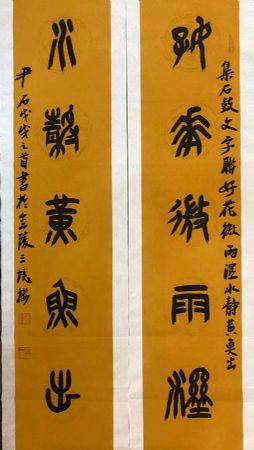 集石鼓文字聯好花微雨溼水靜黄魚出
好華微雨溼
水靜黄魚出
尹石戊戌之首書於金陵三樓